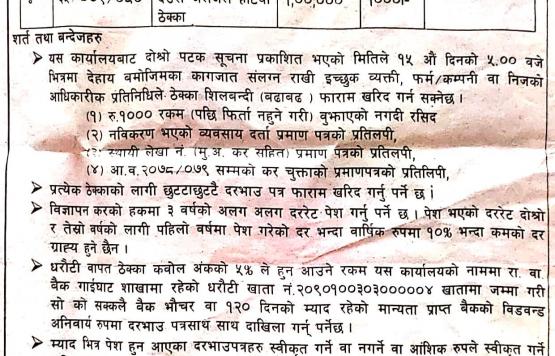 ठेक्का
शर्त तथा बन्देजहरु
➤ यस कार्यालयबाट दोश्रो पटक सूचना प्रकाशित भएको मितिले १५ औं दिनको ५.०० वजे
भित्रमा देहाय बमोजिमका कागजात संलग्न राखी इच्छुक व्यक्ती, फर्म/कम्पनी वा निजको
आधिकारीक प्रतिनिधिले ठेक्का शिलबन्दी (बढाबढ) फाराम खरिद गर्न सक्नेछ ।
(१) रु.१००० रकम (पछि फिर्ता नहुने गरी) बुझाएको नगदी रसिद
(२) नविकरण भएको व्यवसाय दर्ता प्रमाण पत्रको प्रतिलपी,
(३) स्थायी लेखा नं. (मु.अ. कर सहित) प्रमाण पत्रको प्रतिलपी,
(४) आ.व.२०७८/०७९ सम्मको कर चुक्ताको प्रमाणपत्रको प्रतिलिपी,
➤ प्रत्येक ठेक्काको लागी छुटटाछुटटै दरभाउ पत्र फाराम खरिद गर्नु पर्ने छ ।
➤ विज्ञापन करको हकमा ३ वर्षको अलग अलग दररेट पेश गर्नु पर्ने छ । पेश भएको दररेट दोश्रो
र तेस्रो वर्षको लागी पहिलो वर्षमा पेश गरेको दर भन्दा वार्षिक रुपमा १०% भन्दा कमको दर
ग्राह्य हुने छैन ।
➤ धरौटी वापत ठेक्का कवोल अंकको ५% ले हुन आउने रकम यस कार्यालयको नाममा रा. वा.
बैक गाईघाट शाखामा रहेको धरौटी खाता नं.२०९०१००३०३००००४ खातामा जम्मा गरी
सो को सक्कलै बैक भौचर वा १२० दिनको म्याद रहेको मान्यता प्राप्त बैकको विडवन्ड
अनिवार्य रुपमा दरभाउ पत्रसाथ साथ दाखिला गर्नु पर्नेछ ।
➤ म्याद भित्र पेश हुन आएका दरभाउपत्रहरु स्वीकृत गर्ने वा नगर्ने वा आंशिक रुपले स्वीकृत गर्ने